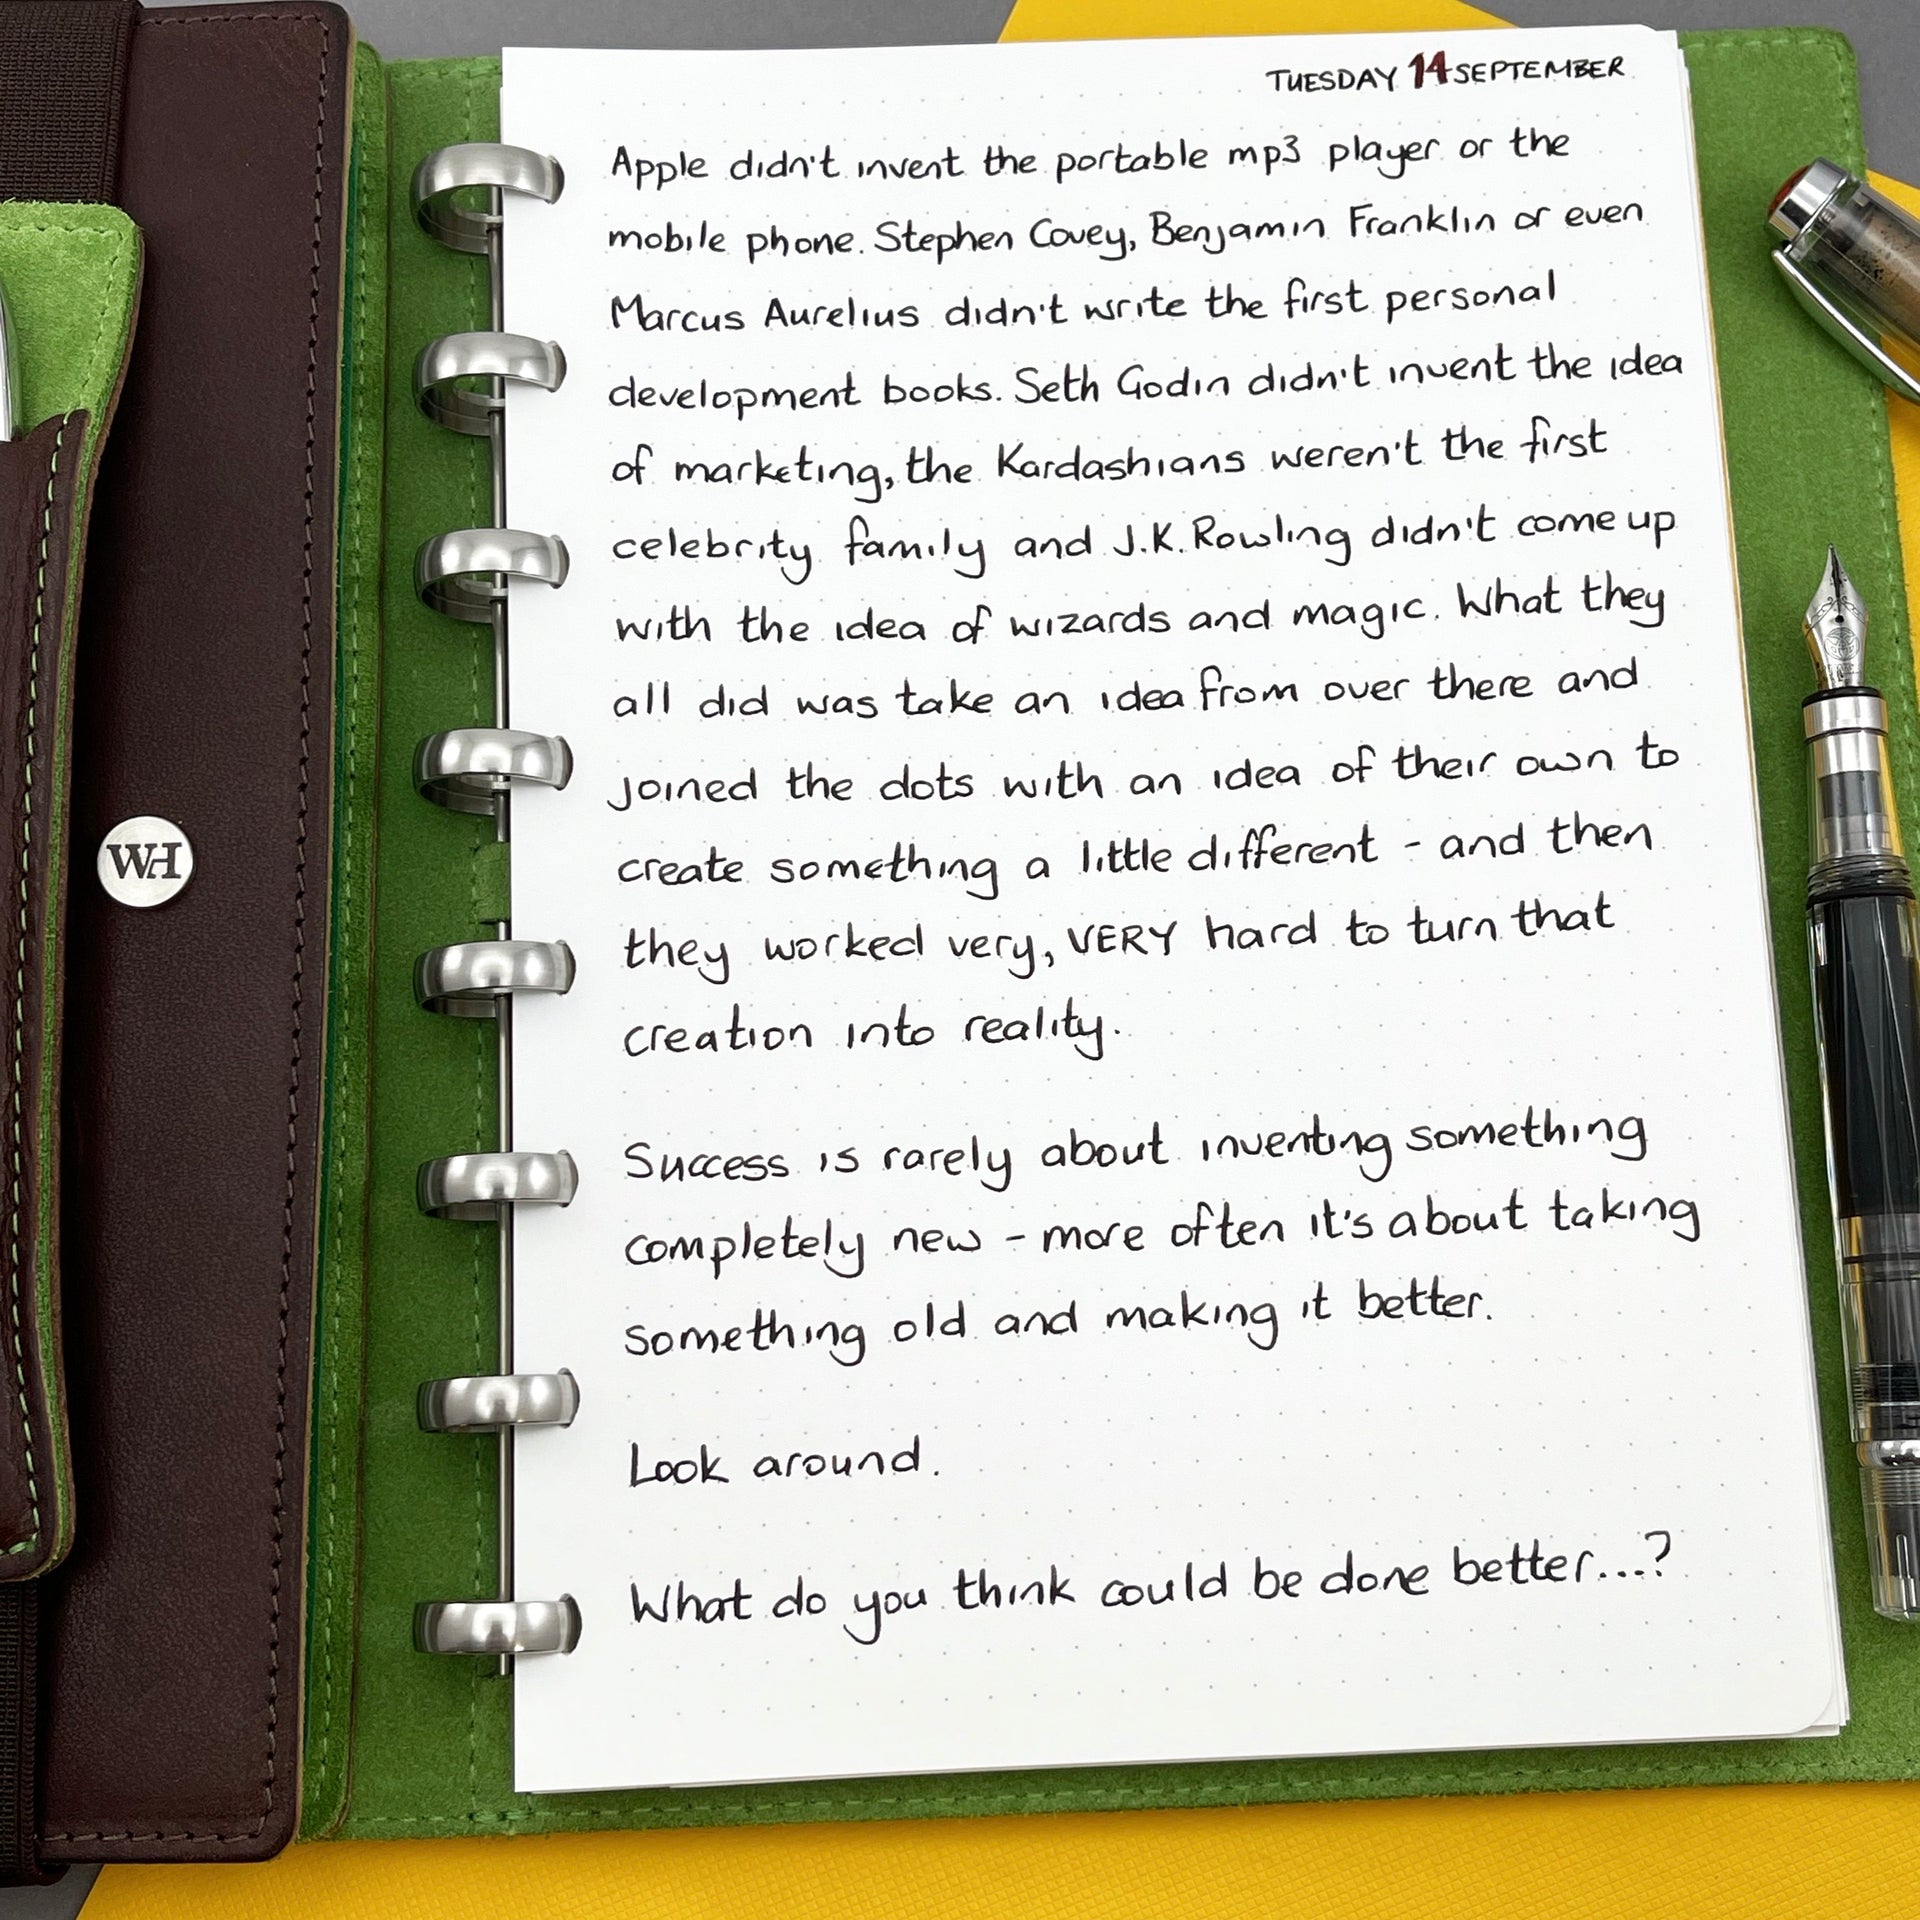 TUESDAY 14 SEPTEMBER
Apple didn't invent the portable mp3 player or the
mobile phone. Stephen Covey, Benjamin Franklin or even
Marcus Aurelius didn't write the first personal
development books. Seth Godin didn't invent the idea
of marketing, the Kardashians weren't the first
celebrity family and J.K. Rowling didn't come up
with the idea of wizards and magic. What they
all did was take an idea from over there and
joined the dots with an idea of their own to
create something a little different - and then
they worked very, VERY hard to turn that
creation into reality.
Success is rarely about inventing something
completely new - more often it's about taking
something old and making it better.
Look around.
What do you think could be done better...?
WH